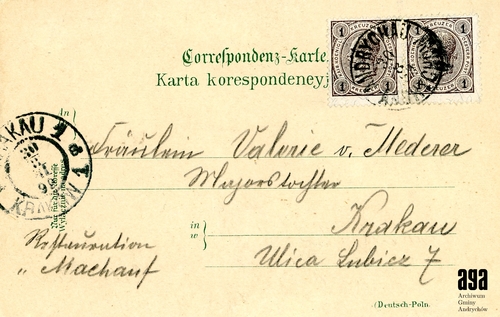 Correspondenz-Karte.
Karta korespondencyj
1 KREUZER 1
1 KREUZER 1
ANDRYCHAU
KRAKAU 1
KRAKÓW
In
Fräulein Valerie v. Mederer
Majorstochter
in
w
Krakau
Ulica Lubicz 7
Restauration
„ Machauf
Nur für die Adresse
(Deutsch-Poln.
aga
Archiwum
Gminy
Andrychów